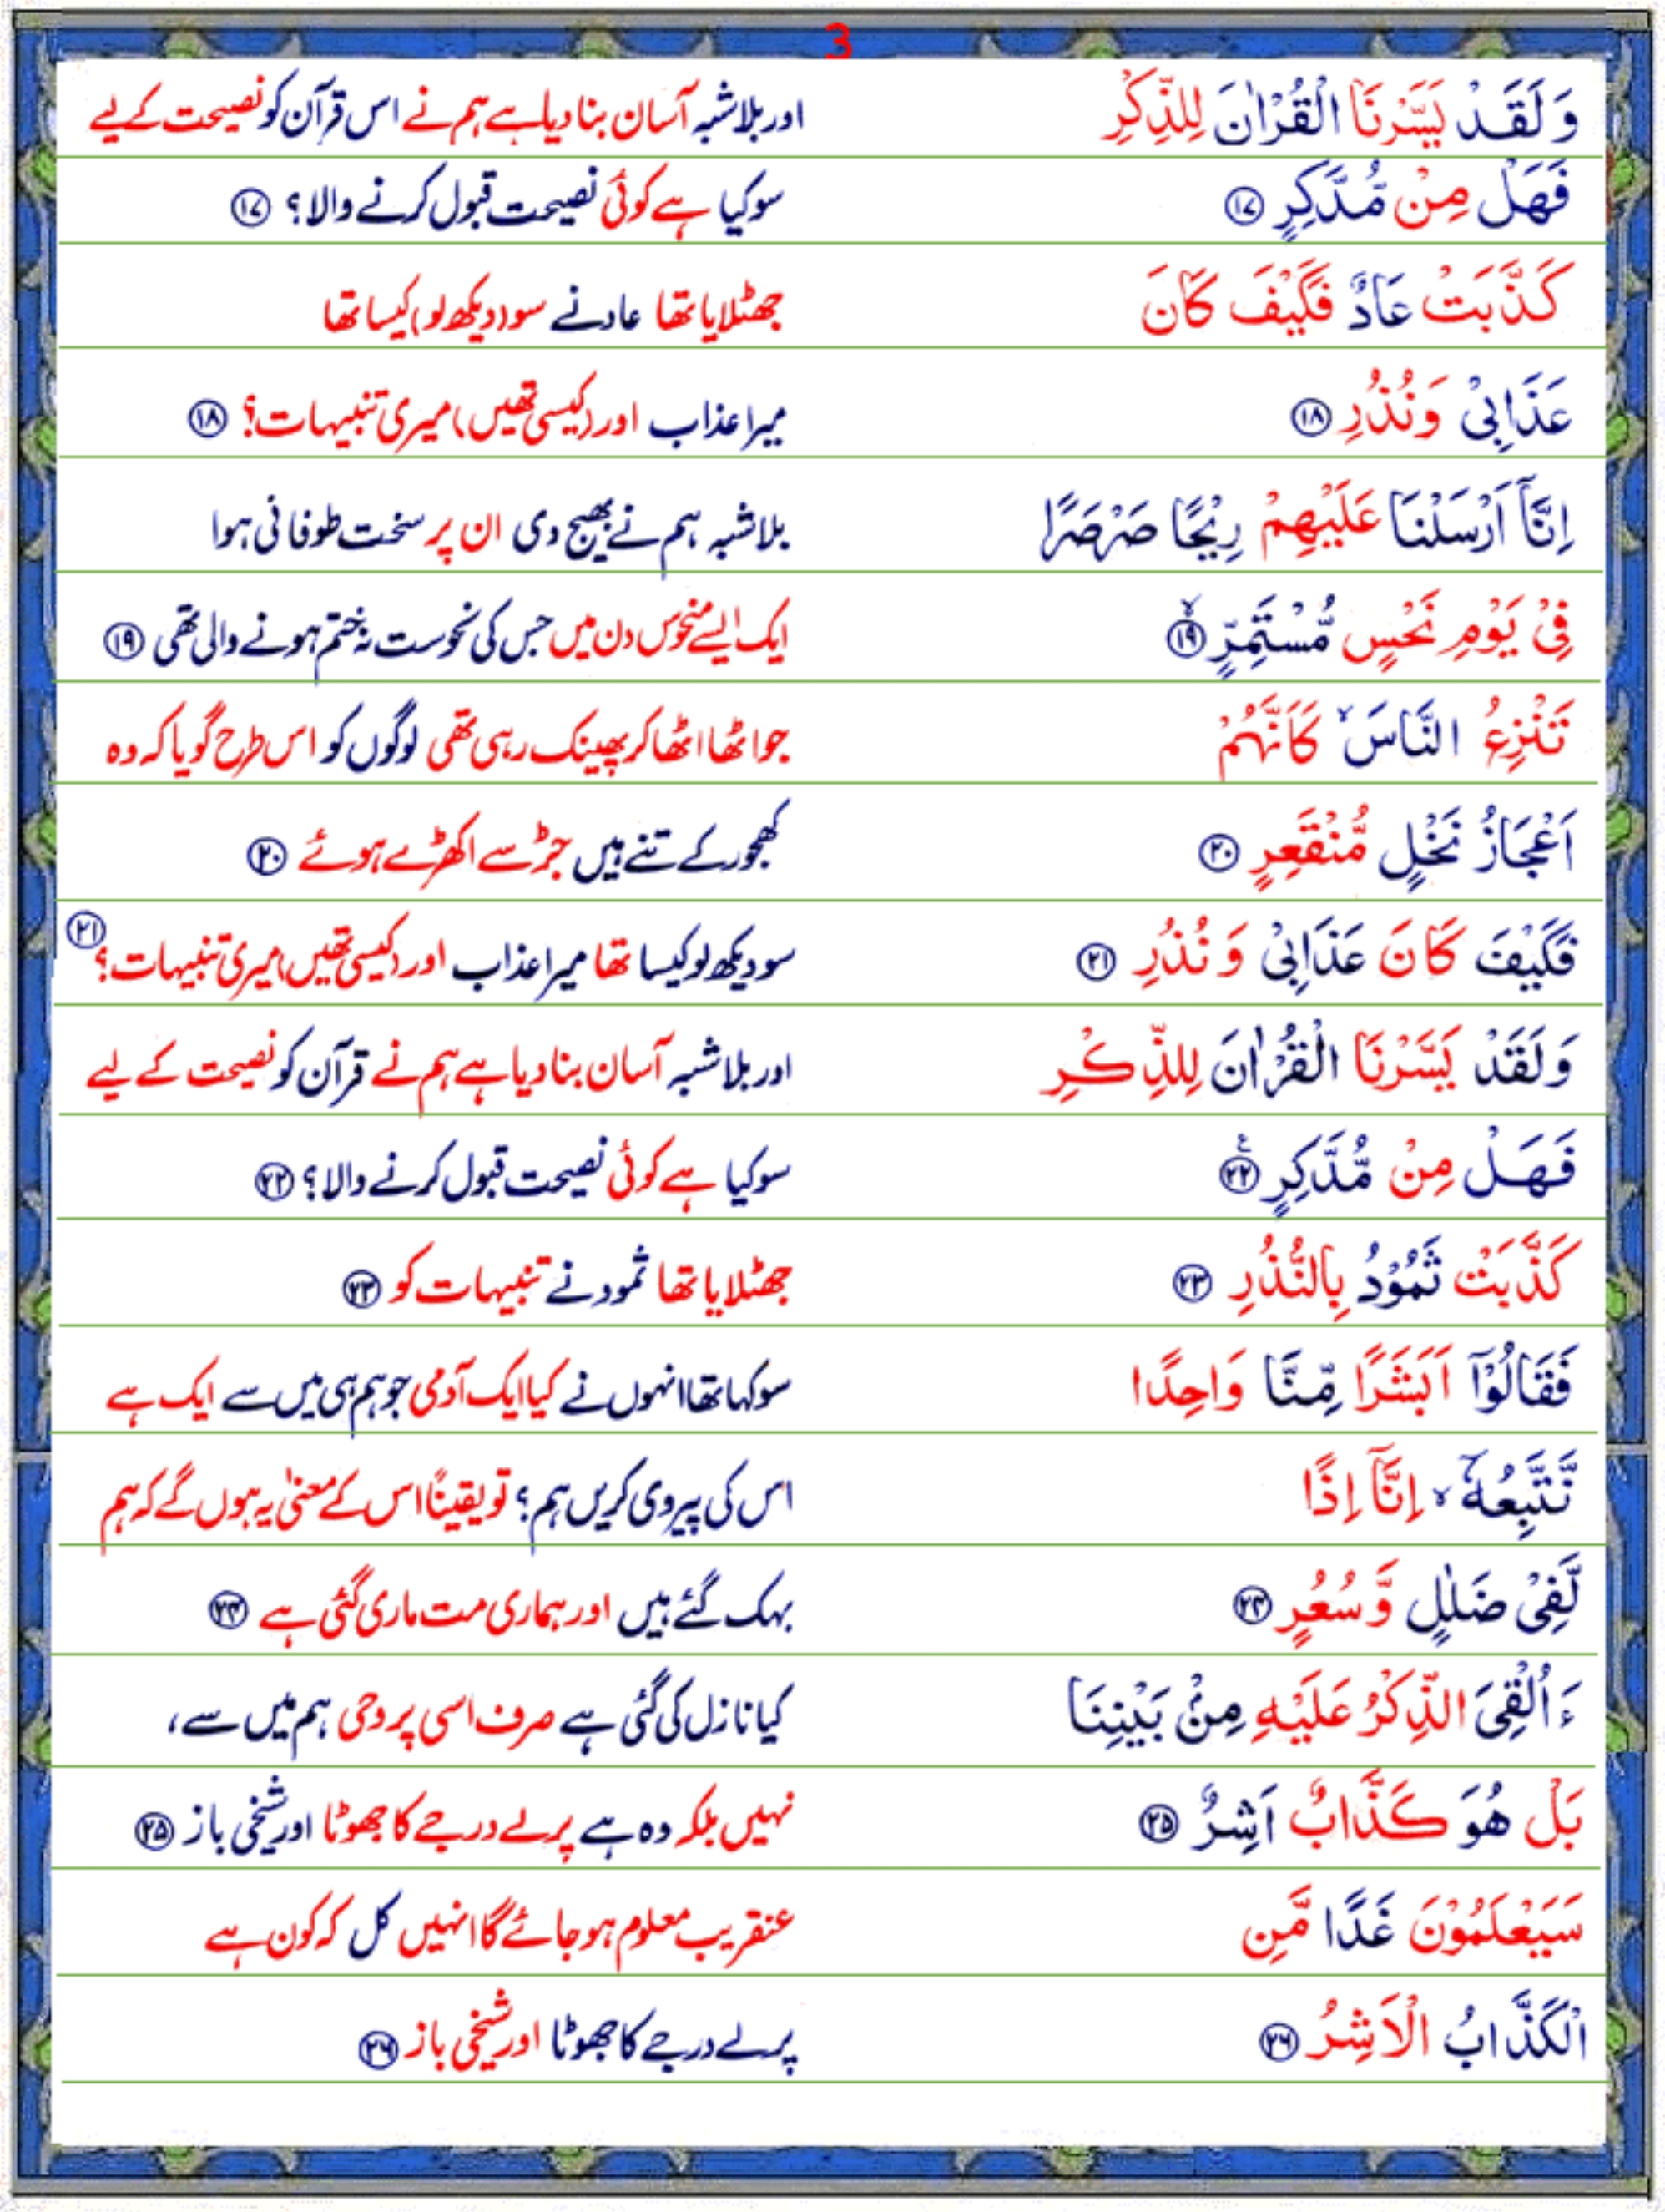 3
وَلَقَدْ يَسَّرْنَا الْقُرْاٰنَ لِلذِّكْرِ اور بلاشبہ آسان بنا دیا ہے ہم نے اس قرآن کو نصیحت کے لیے
فَهَلْ مِنْ مُّدَّكِرٍ ۝۱۷ سو کیا ہے کوئی نصیحت قبول کرنے والا؟ ۝۱۷
كَذَّبَتْ عَادٌ فَكَيْفَ كَانَ جھٹلایا تھا عاد نے سو (دیکھ لو) کیسا تھا
عَذَابِيْ وَنُذُرِ ۝۱۸ میرا عذاب اور (کیسی تھیں) میری تنبیہات؟ ۝۱۸
اِنَّآ اَرْسَلْنَا عَلَيْهِمْ رِيْحًا صَرْصَرًا بلاشبہ ہم نے بھیج دی ان پر سخت طوفانی ہوا
فِيْ يَوْمِ نَحْسٍ مُّسْتَمِرٍّ ۝۱۹ۙ ایک ایسے منحوس دن میں جس کی نحوست نہ ختم ہونے والی تھی ۝۱۹
تَنْزِعُ النَّاسَ ۙ كَاَنَّهُمْ جو اٹھا اٹھا کر پھینک رہی تھی لوگوں کو اس طرح گویا کہ وہ
اَعْجَازُ نَخْلٍ مُّنْقَعِرٍ ۝۲۰ کھجور کے تنے ہیں جڑ سے اکھڑے ہوئے ۝۲۰
فَكَيْفَ كَانَ عَذَابِيْ وَنُذُرِ ۝۲۱ سو دیکھ لو کیسا تھا میرا عذاب اور (کیسی تھیں) میری تنبیہات؟ ۝۲۱
وَلَقَدْ يَسَّرْنَا الْقُرْاٰنَ لِلذِّكْرِ اور بلاشبہ آسان بنا دیا ہے ہم نے قرآن کو نصیحت کے لیے
فَهَلْ مِنْ مُّدَّكِرٍ ۝۲۲ۧ سو کیا ہے کوئی نصیحت قبول کرنے والا؟ ۝۲۲
كَذَّبَتْ ثَمُوْدُ بِالنُّذُرِ ۝۲۳ جھٹلایا تھا ثمود نے تنبیہات کو ۝۲۳
فَقَالُوْٓا اَبَشَرًا مِّنَّا وَاحِدًا سو کہا تھا انہوں نے کیا ایک آدمی جو ہم ہی میں سے ایک ہے
نَّتَّبِعُهٗٓ ۙ اِنَّآ اِذًا اس کی پیروی کریں ہم؟ تو یقیناً اس کے معنیٰ یہ ہوں گے کہ ہم
لَّفِيْ ضَلٰلٍ وَّسُعُرٍ ۝۲۴ بہک گئے ہیں اور ہماری مت ماری گئی ہے ۝۲۴
ءَاُلْقِيَ الذِّكْرُ عَلَيْهِ مِنْۢ بَيْنِنَا کیا نازل کی گئی ہے صرف اسی پر وحی ہم میں سے،
بَلْ هُوَ كَذَّابٌ اَشِرٌ ۝۲۵ نہیں بلکہ وہ ہے پرلے درجے کا جھوٹا اور شیخی باز ۝۲۵
سَيَعْلَمُوْنَ غَدًا مَّنِ عنقریب معلوم ہو جائے گا انہیں کل کہ کون ہے
الْكَذَّابُ الْاَشِرُ ۝۲۶ پرلے درجے کا جھوٹا اور شیخی باز ۝۲۶